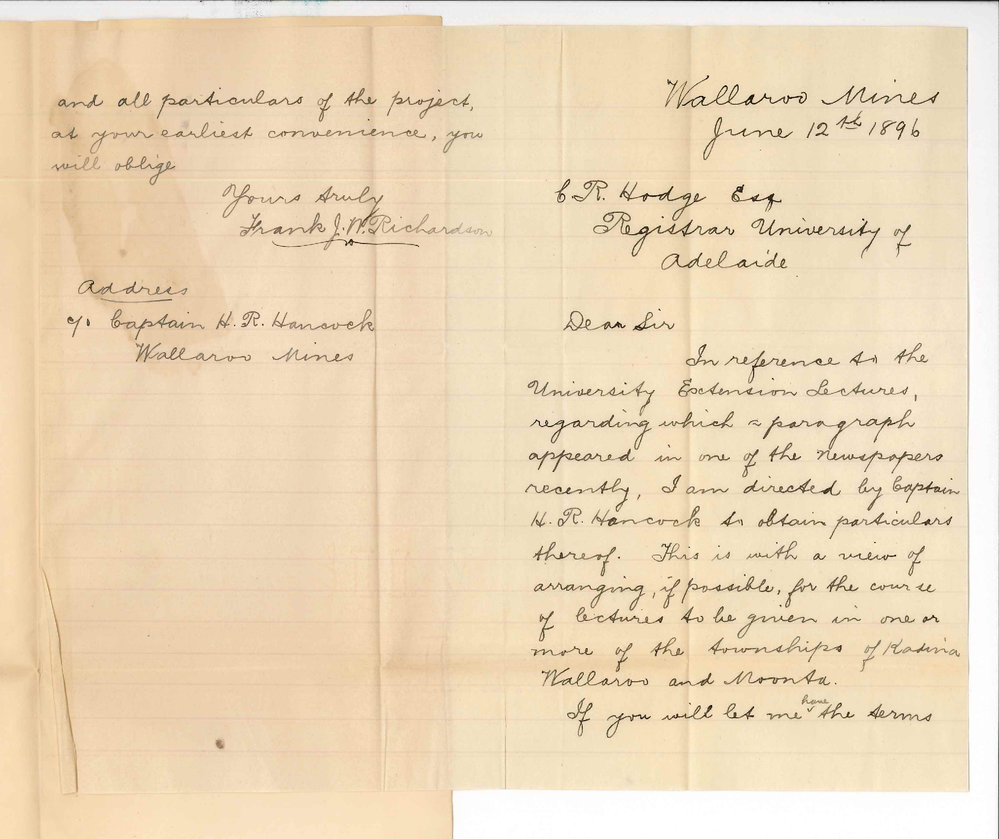 Wallaroo Mines
June 12th 1896
C R. Hodge Esq
Registrar University of
Adelaide.
Dear Sir
In reference to the
University Extension Lectures,
regarding which a paragraph
appeared in one of the newspapers
recently, I am directed by Captain
H. R. Hancock to obtain particulars
thereof. This is with a view of
arranging, if possible, for the course
of lectures to be given in one or
more of the townships of Kadina
Wallaroo and Moonta.
If you will let me have the terms
and all particulars of the project,
at your earliest convenience, you
will oblige
Yours truly
Frank J. W. Richardson
Address
c/o Captain H. R. Hancock
Wallaroo Mines